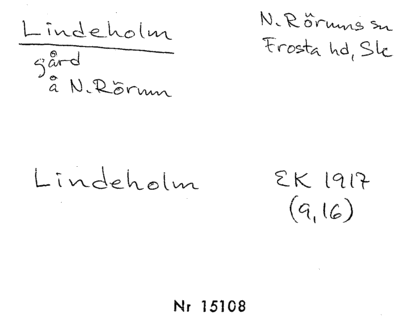 Lindeholm
gård
å N. Rörum
N. Rörums sn
Frosta hd, Sk
Lindeholm
EK 1917
(9,16)
Nr 15108